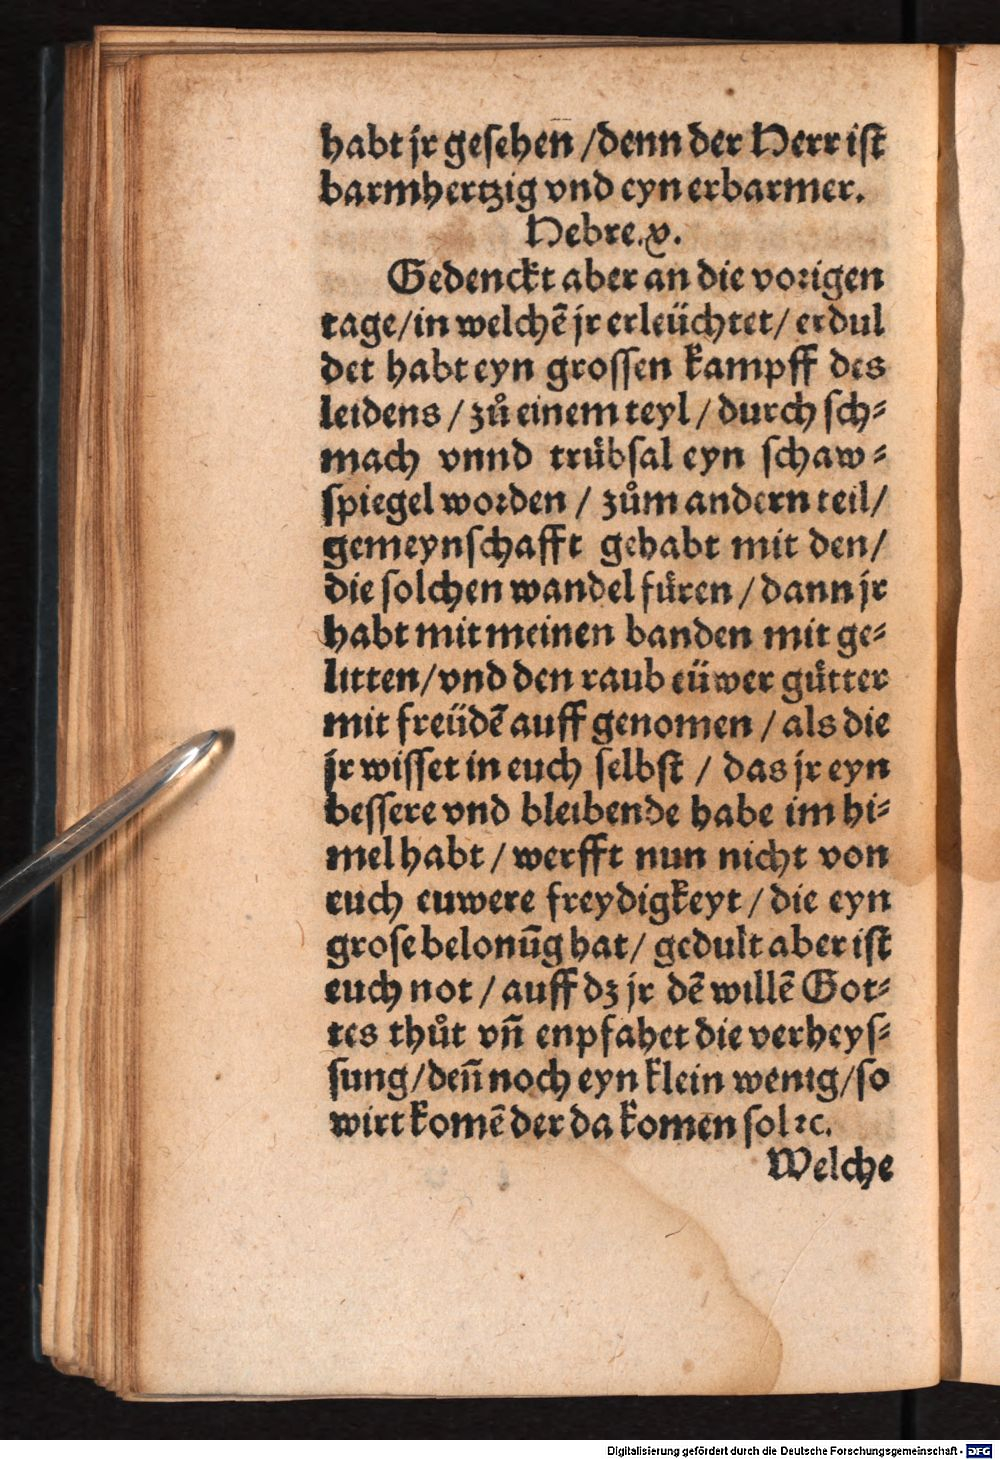 habt jr gesehen / denn der Herr ist
barmhertzig vnd eyn erbarmer.
Hebre. x.
Gedenckt aber an die vorigen
tage / in welchẽ jr erleüchtet / erdul
det habt eyn grossen kampff des
leidens / zů einem teyl / durch sch⸗
mach vnnd trůbsal eyn schaw⸗
spiegel worden / zům andern teil /
gemeynschafft gehabt mit den /
die solchen wandel fůren / dann jr
habt mit meinen banden mit ge⸗
litten / vnd den raub eüwer gůtter
mit freüdẽ auff genomen / als die
jr wisset in euch selbst / das jr eyn
bessere vnd bleibende habe im hi⸗
mel habt / werfft nun nicht von
euch euwere freydigkeyt / die eyn
grose belonũg hat / gedult aber ist
euch not / auff dz jr dẽ willẽ Got⸗
tes thůt vñ enpfahet die verheys⸗
sung / deñ noch eyn klein wenig / so
wirt komẽ der da komen sol ꝛc.
Welche
Digitalisierung gefördert durch die Deutsche Forschungsgemeinschaft - DFG